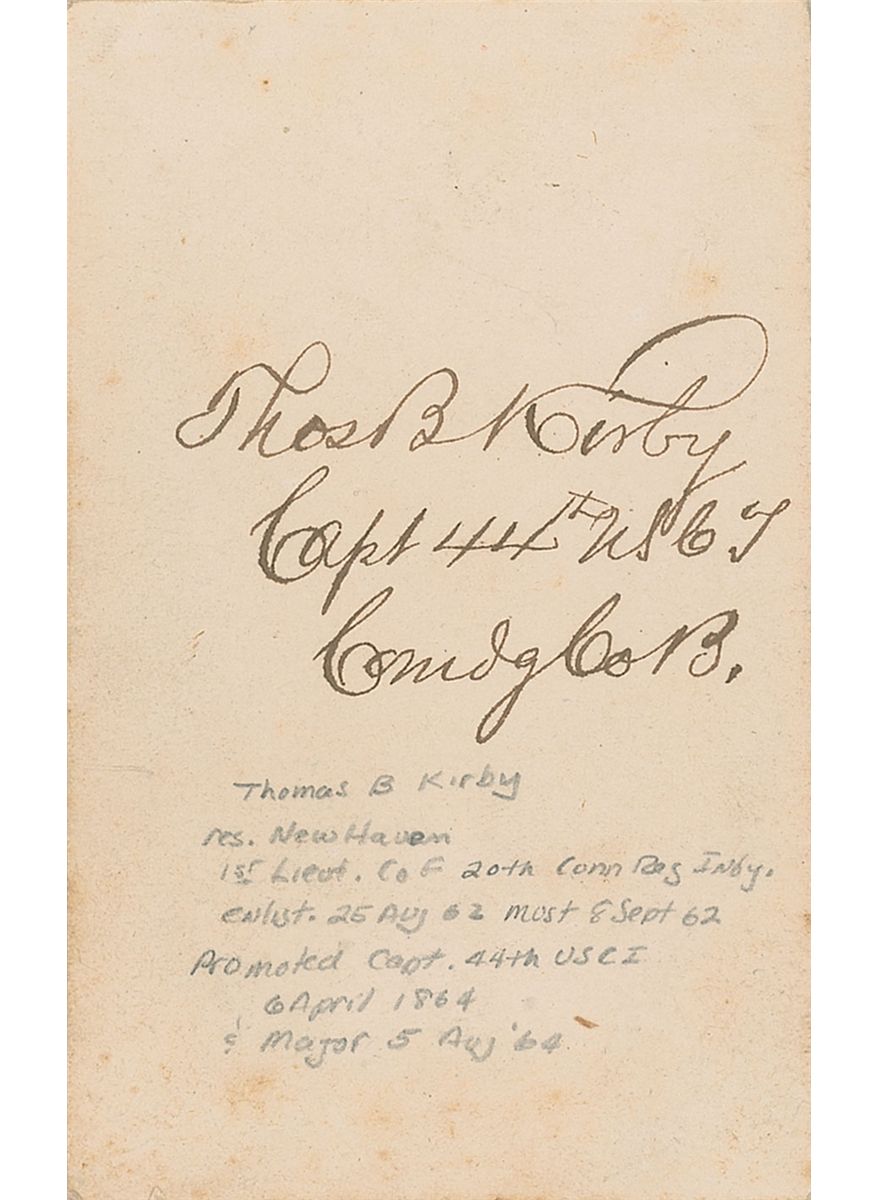 Thos B Kirby
Capt 44th U S C T
Comdg Co B.
Thomas B Kirby
res. New Haven
1st Lieut. Co F 20th Conn Reg Infy.
enlist. 25 Aug 62 must 8 Sept 62
Promoted Capt. 44th USCI
6 April 1864
& Major 5 Aug '64